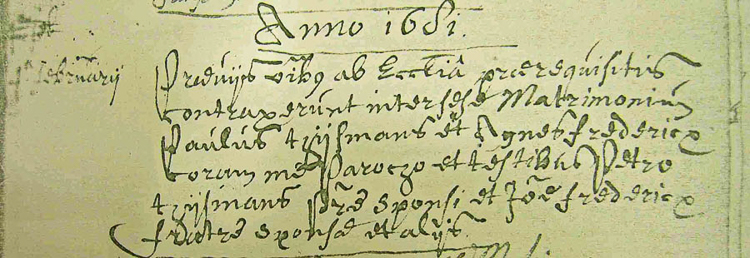 Anno 1681.
februarij
Prævijs oībꝰ ab Ecclīa prærequisitis
contraxerunt inter sese Matrimonium
Paulus tzijsmans et Agnes fredericx
coram me Parocho et testibus Petro
tzijsmans pr̄e sponsi et Joē fredericx
fratre sponsæ et alijs.